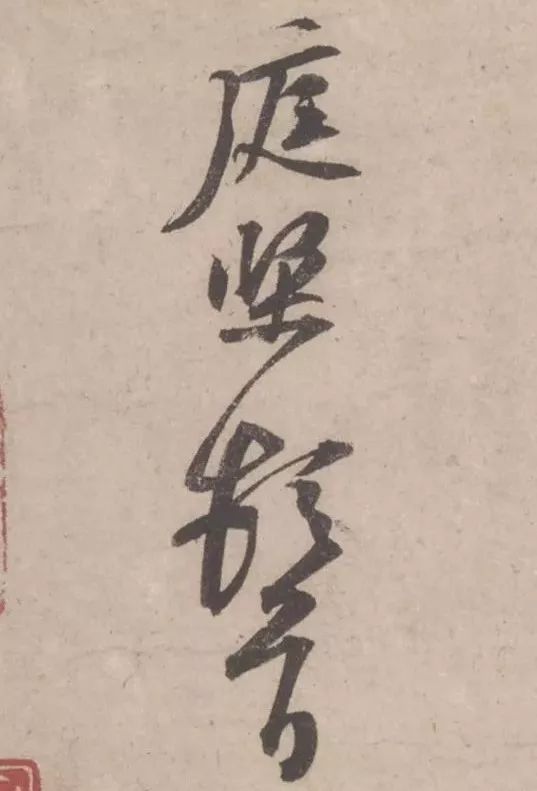 庭堅頓首